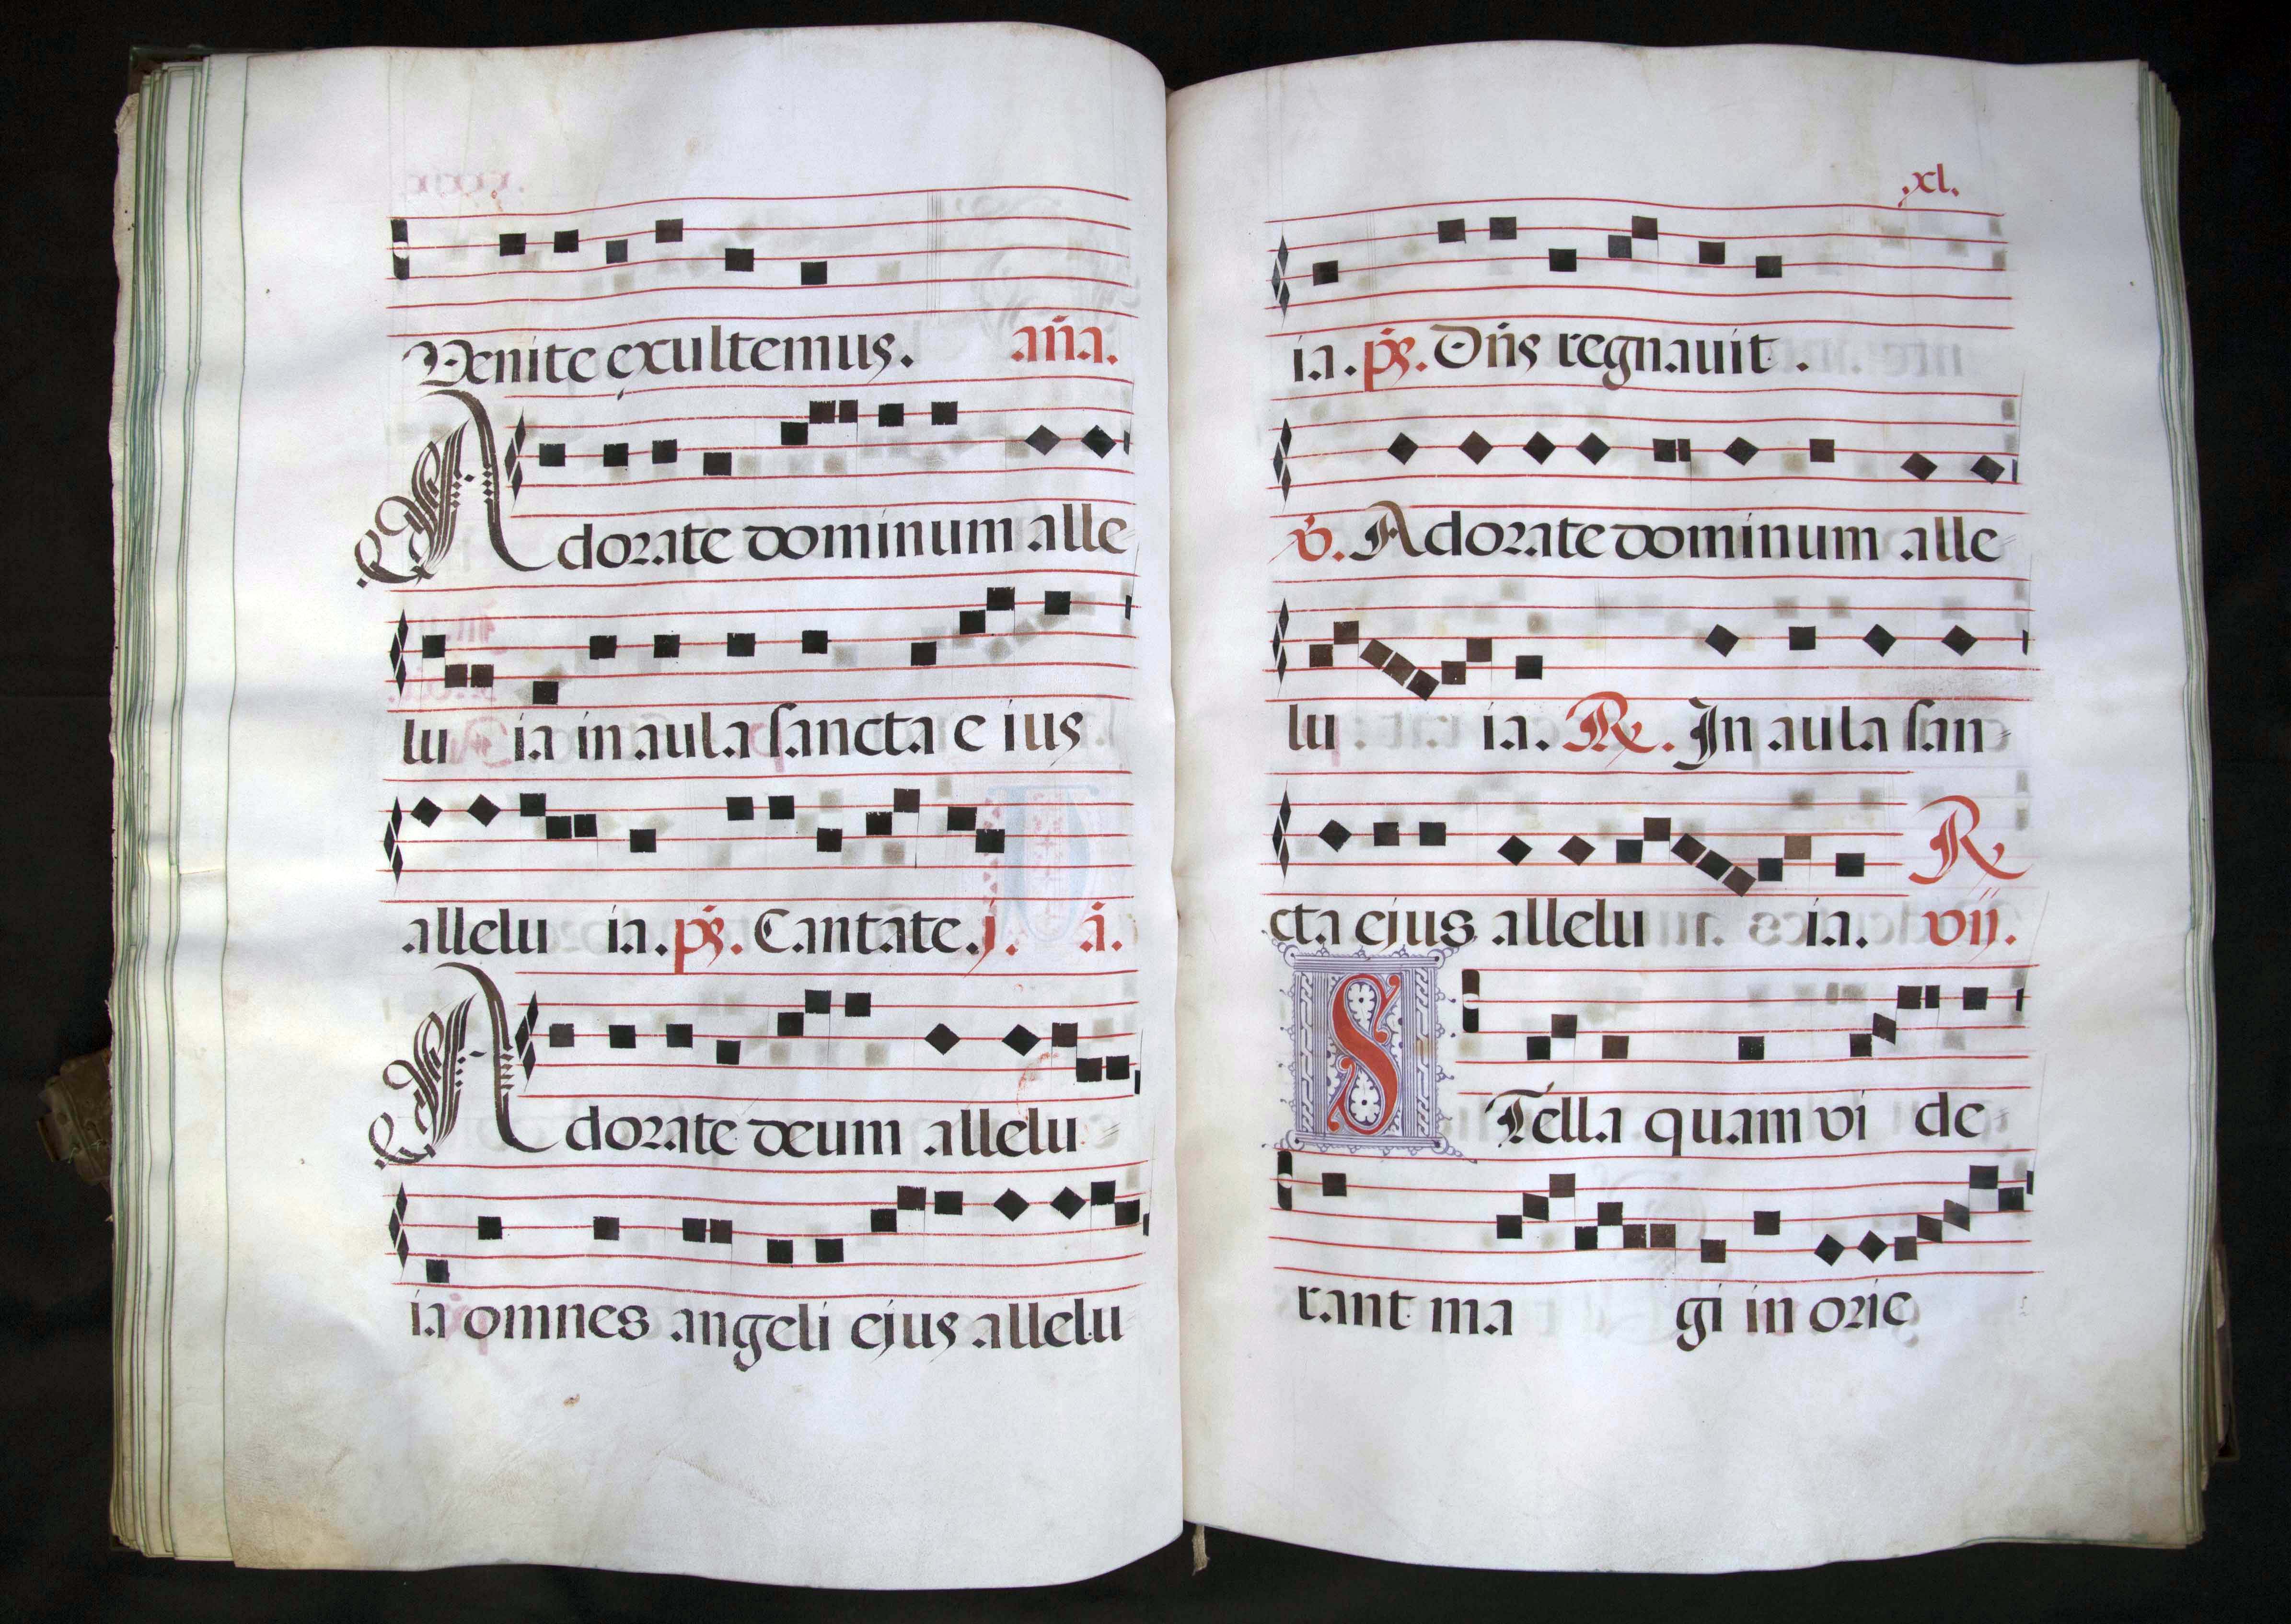 Venite exultemus. an̄a.
Adorate dominum alle
lu ia in aula sancta e ius
allelu ia. ps̄. Cantate. j. ā.
Adorate deum allelu
ia omnes angeli ejus allelu
.xl.
ia. ps̄. Dn̄s regnauit.
v̄. Adorate dominum alle
lu ia. R. In aula san
cta ejus allelu ia. R vij.
STella quam vi de
rant ma gi in orie